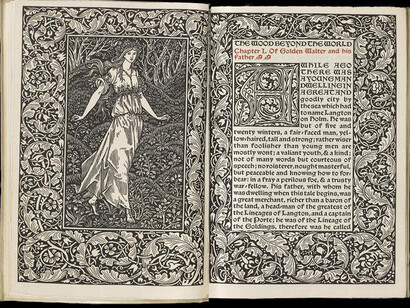 THE WOOD BEYOND THE WORLD
Chapter I. Of Golden Walter and his
Father
AWHILE AGO
THERE WAS
A YOUNG MAN
DWELLING IN
A GREAT AND
goodly city by
the sea which had
to name Langton
on Holm. He was
but of five and
twenty winters, a fair-faced man, yel-
low-haired, tall and strong; rather wiser
than foolisher than young men are
mostly wont; a valiant youth, & a kind;
not of many words but courteous of
speech; no roisterer, nought masterful,
but peaceable and knowing how to for-
bear: in a fray a perilous foe, & a trusty
war-fellow. His father, with whom he
was dwelling when this tale begins, was
a great merchant, richer than a baron of
the land, a head-man of the greatest of
the Lineages of Langton, and a captain
of the Porte; he was of the Lineage of
the Goldings, therefore was he called